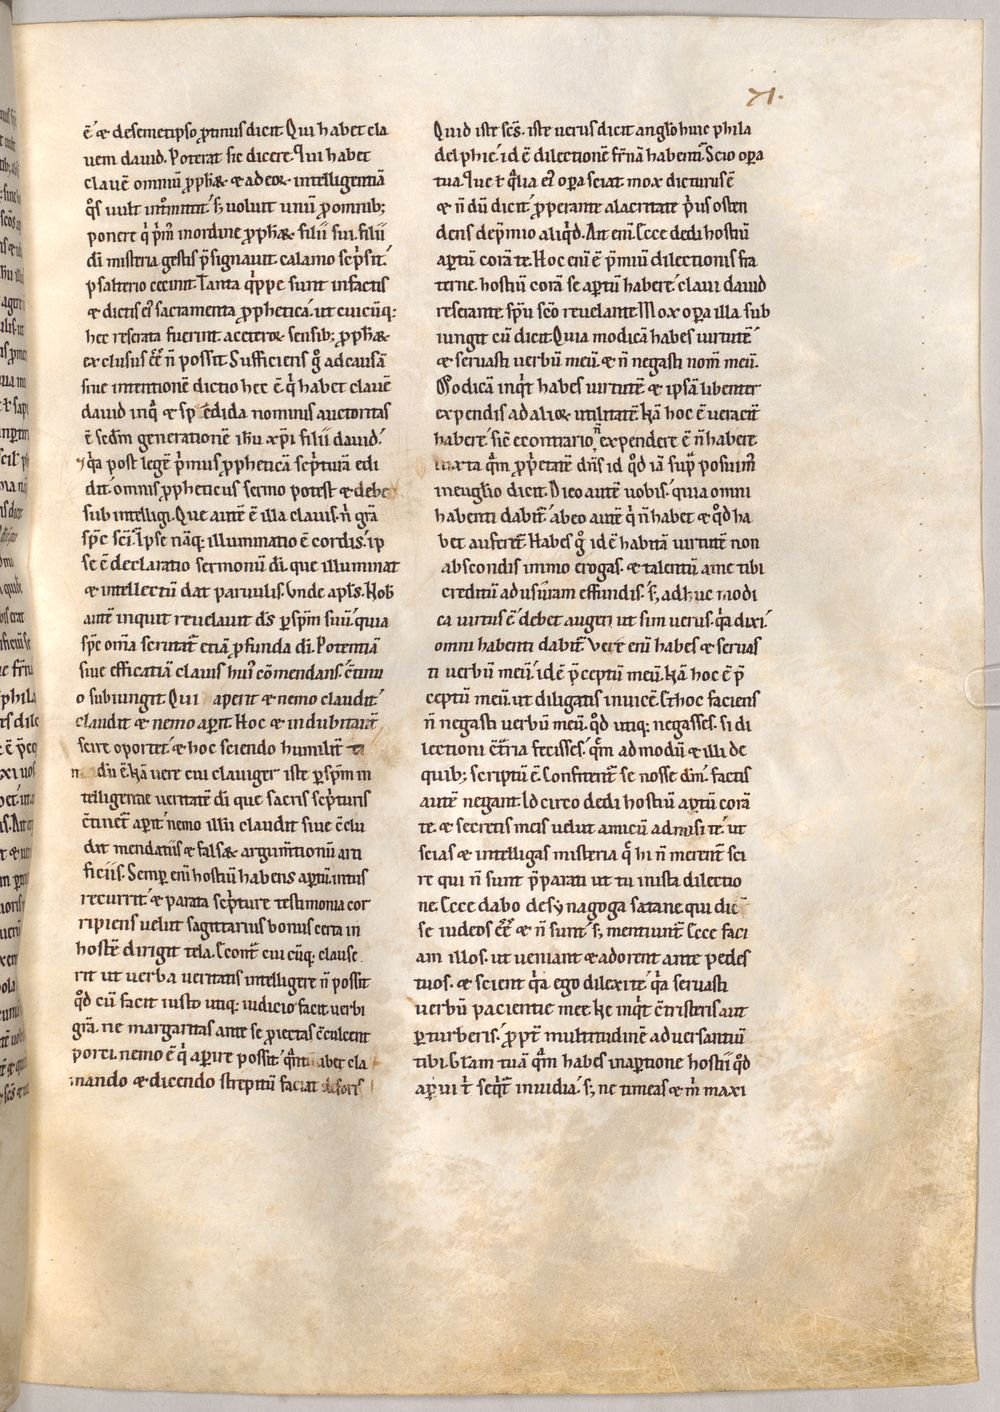 71.
ē ⁊ desemetipso ꝓtinus dicit. Qui habet cla
uem dauid. Poterat sic dicere. Qui habet
clauē omniū ꝓphꝫ ⁊ adeoꝝ intelligentiā
q̊s uult int̄mittit. sꝫ uoluit unū ꝓ omnibꝫ
ponere q̇ p̄m̄ inordine ꝓphꝫ filii sui. filii
dī misteria gestis p̄signauit calamo scͥpsit
psalterio cecinit. Tanta q̇ppe sunt infactis
⁊ dictis eiꝰ sacramenta ꝓphetica. ut cuicūqꝫ
hec reserata fuerint. aceteroꝝ sensibꝫ ꝓphꝫ
exclusus ēē n̄ possit. Sufficiens g̊ adcausā
siue intentionē dictio hec ē q̇ habet clauē
dauid inq̄ ⁊ sp edida nominis auctoritas
ē scdm̄ generationē ihū xp̄i filii dauid.
q̇a post legē ṗmus ꝓpheticā scͥpturā edi
dit. omnis ꝓpheticus sermo potest ⁊ debe
subintelligi. Que autē ē illa clauis. n̄ gr̄a
sp̄c sc̄i. Ipse nāqꝫ illuminatio ē cordis. ip
se ē declaratio sermonū dī. que illuminat
⁊ intellectū dat paruulis. Vnde apl̄s. Nob̄
autē inquit reuelauit dſ̄ ꝑ sp̄m suū. quia
sp̄c om̄a scrutat̄ etiā ꝓfunda dī. Potentiā
siue efficatiā clauis huiꝰ cōmendans. c̄tinu
o subiungit. Qui aperit ⁊ nemo claudit
claudit ⁊ nemo aperit. Hoc ⁊ indubitant̄
scire oportet. ⁊ hoc sciendo humilit̄
dū ē. Nā uere cui clauiger iste ꝑ sp̄m in
telligentie ueritatē dī que sacris scͥpturis
c̄tinet̄ aꝑit. nemo illū claudit siue c̄clu
dit mendatiis ⁊ falsaꝝ argum̄tionū arti
ficiis. Semꝑ enī hostiū habens aꝑtū. intus
recurrit. ⁊ parata scͥpture testimonia cor
ripiens uelut sagittarius bonus certa in
hostē dirigit tela. Econt̄ cui cūqꝫ clause
rit ut uerba ueritatis intelligere n̄ possit
qd̄ cū facit iusto utiqꝫ iudicio facit. uerbi
gr̄a. ne margaritas ante se ꝓiectas c̄culcent
porci. nemo ē q̇ aꝑire possit. abet cla
mando ⁊ dicendo strepitū faciat deforis
Quid iste sc̄s. iste uerus dicit anglo huic phila
delphie. id ē dilectionē frn̄ā habenti. Scio oꝑa
tua. Que t̄ q̇lia eiꝰ oꝑa sciat mox dicturus ē
⁊ n̄ dū dicit. ꝓperante alacritate ṗus osten
dens dep̄mio aliqd̄. Ait enī. Ecce dedi hostiū
aꝑtū corā te. Hoc enī ē p̄miū dilectionis fra
terne. hostiū corā se aꝑtū habere. claui dauid
reserante. sp̄u sc̄o reuelante. Mox oꝑa illa sub
iungit cū dicit. Quia modicā habes uirtutē
⁊ seruasti uerbū meū. ⁊ n̄ negasti nom̄ meū.
Modicā inq̇t habes uirtutē ⁊ ipsā libenter
expendis ad alioꝝ utilitatē. Nā hoc ē ueracit̄
habere. sic̄ econtrario n̄ expendere ē n̄ habere
iuxta qm̄ ꝓṗetatē dn̄s id qd̄ iā sup̄ posuim̄
ineuglio dicit. Dico autē uobis. quia omni
habenti dabit̄. abeo autē q̇ n̄ habet ⁊ qd̄ ha
bet auferet̄. Habes g̊ id ē habitā uirtutē non
abscondis immo erogas. ⁊ talentū a me tibi
creditū adusuram effundis. sꝫ adhuc modi
ca uirtus ē. debet augeri ut sim uerus. q̇a dixi
omni habenti dabit̄. Vere enī habes ⁊ seruas
ti uerbū meū. id ē p̄ceptū meū. Nā hoc ē p̄
ceptū meū. ut diligatis inuicē. Et hoc faciens
n̄ negasti uerbū meū. qd̄ utiqꝫ negasses. si di
lectioni c̄t̄ria fecisses. qm̄ admodū ⁊ illi de
quibꝫ scriptū ē. Confitent̄ se nosse dm̄. factis
autē negant. Idcirco dedi hostiū aꝑtū corā
te. ⁊ secretis meis uelut amicū admisi te. ut
scias ⁊ intelligas misteria q̄ hi n̄ merent̄ sci
re qui n̄ sunt p̄parati ut tu iniusta dilectio
ne. Ecce dabo desynagoga satane. qui dic̄
se iudeos ēē ⁊ n̄ sunt sꝫ mentiunt̄. Ecce faci
am illos. ut ueniant ⁊ adorent ante pedes
tuos. ⁊ scient q̇a ego dilexi te. q̇a seruasti
uerbū pacientie mee. Ne inq̇t c̄tristeris aut
ꝑturberis. ꝓpt̄ multitudinē aduersantiū
tibi. Gr̄am tuā qm̄ habes inaꝑtione hostiī qd̄
aꝑui t̄ seq̇t̄ inuidia. sꝫ ne timeas ⁊ m̄ maxi